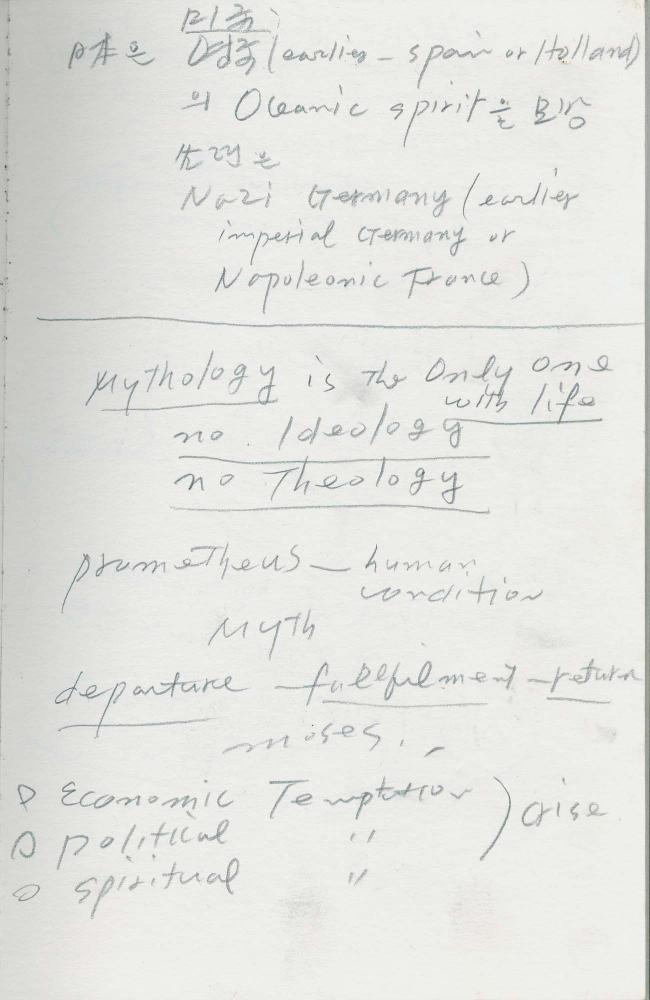 미국
日本은 영국(earlier - spain or Holland)
의 Oceanic spirit을 모방
소련은
Nazi Germany (earlier
imperial Germany or
Napoleonic France)
Mythology is the Only One
with life
no Ideology
no Theology
prometheus - human
condition
Myth
departure - fullfilment - return
moses.
Economic Temptation ) arise
political 〃
spiritual 〃